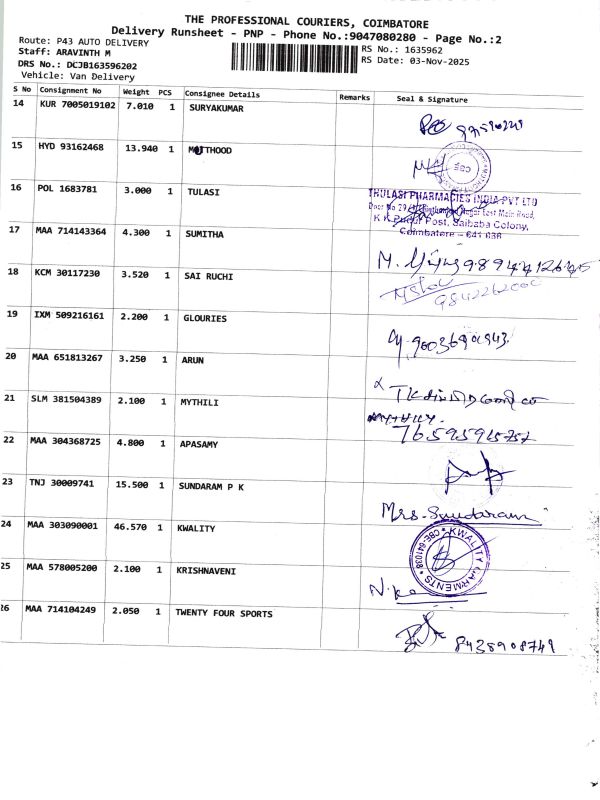 THE PROFESSIONAL COURIERS, COIMBATORE
Delivery Runsheet - PNP - Phone No.:9047080280 - Page No.:2
Route: P43 AUTO DELIVERY
Staff: ARAVINTH M
DRS No.: DCJB163596202
Vehicle: Van Delivery
RS No.: 1635962
RS Date: 03-Nov-2025
S No Consignment No Weight PCS Consignee Details Remarks Seal & Signature
14 KUR 7005019102 7.010 1 SURYAKUMAR
15 HYD 93162468 13.940 1 MUTHOOD
CBE
16 POL 1683781 3.000 1 TULASI
THULASI PHARMACIES INDIA PVT LTD
East Main Road,
Post, Saibaba Colony,
Coimbatore - 641 038
17 MAA 714143364 4.300 1 SUMITHA
18 KCM 30117230 3.520 1 SAI RUCHI
9842262000
19 IXM 509216161 2.200 1 GLOURIES
20 MAA 651813267 3.250 1 ARUN
21 SLM 381504389 2.100 1 MYTHILI
22 MAA 304368725 4.800 1 APASAMY
23 TNJ 30009741 15.500 1 SUNDARAM P K
Mrs. Sundaram
24 MAA 303090001 46.570 1 KWALITY
KWALITY GARMENTS * CBE-641038 *
25 MAA 578005200 2.100 1 KRISHNAVENI
26 MAA 714104249 2.050 1 TWENTY FOUR SPORTS
8438908749